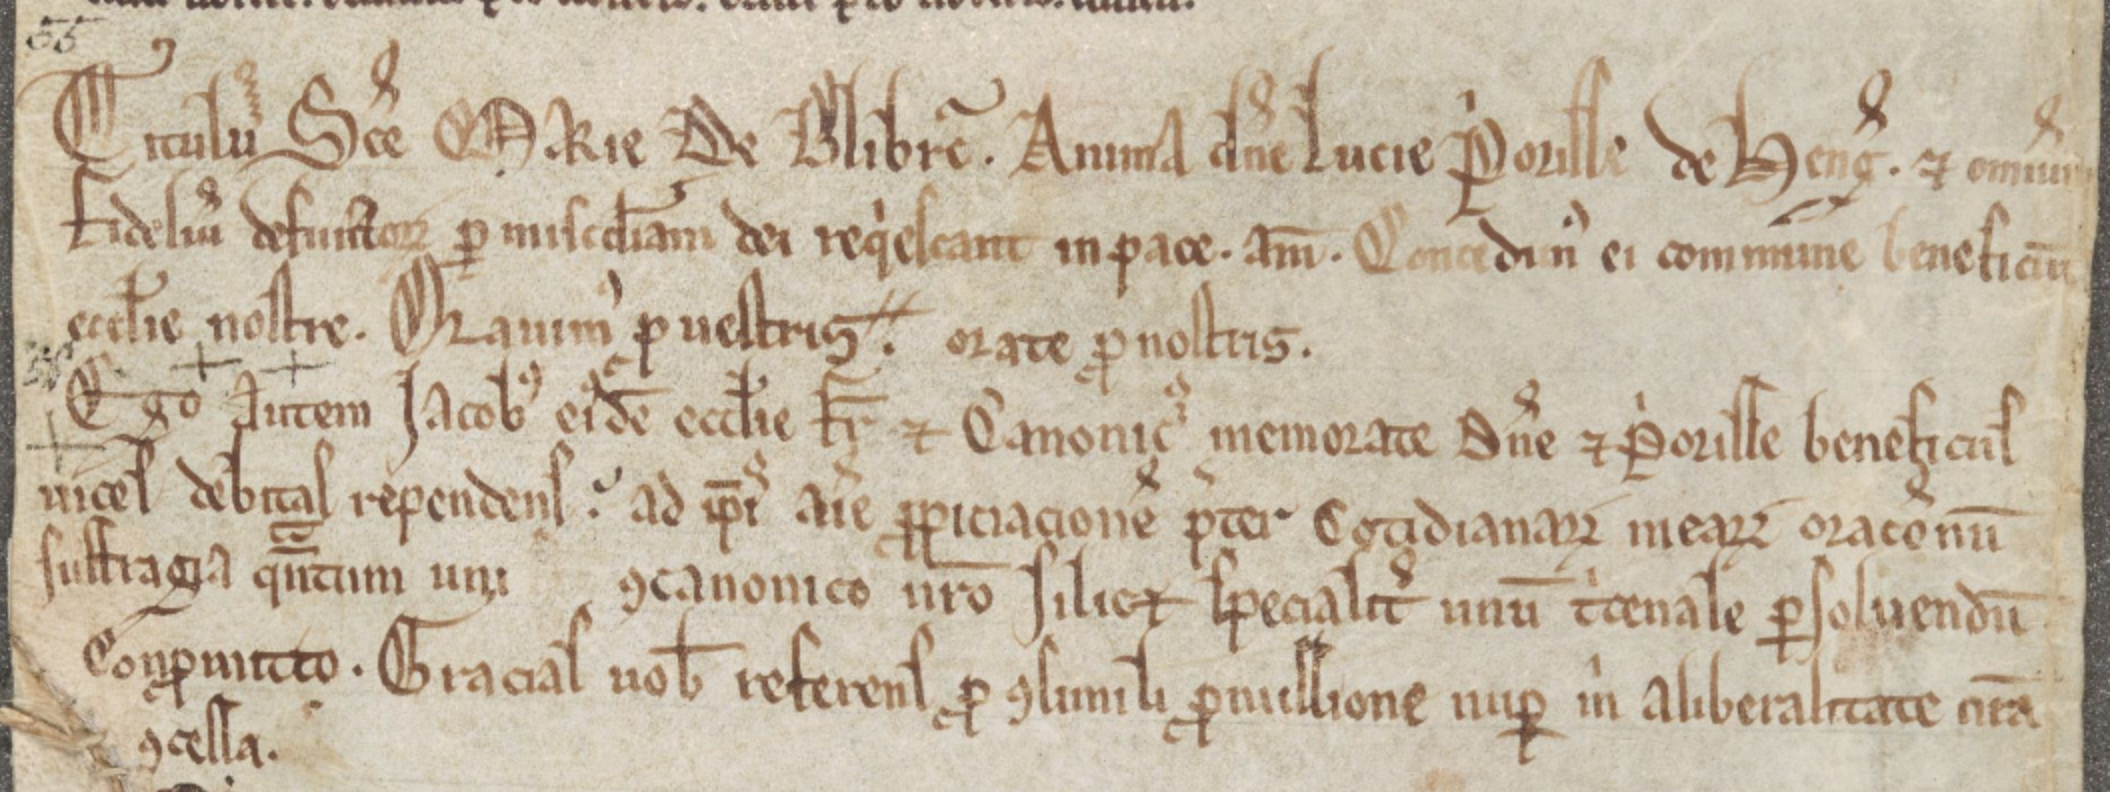 55
Titulū Sce MaRie De Blibrē. Anima dn̄e Lucie P͛orisse de Heng̃. ⁊ omniū
fidel'iū defunctoꝝ ꝑ mis͛cdiam dei req͛escant in pace. am̄. Concedim͛ ei commune beneficiū
eccl'ie nostre. Orauim͛ ꝓ uestris orate ꝓ nostris.
Ego Autem Jacobꝰ eiꝰdē eccl'ie fr̄ ⁊ Canonic͛ memorate Dn̄e ⁊ P͛orisse beneficiis
uices debitas rependens. ad ip̄i͛ aīe ꝓpiciacionē p͛ter Cotidianaꝝ meaꝝ oracōnū
suffragia qᷓntum uni ꝯcanonico nr̄o silicꝫ specialit͛ unū t͛cenale ꝑsoluendū
Conꝓmitto. Gracias uob̄ referens ꝓ ꝯsimili ꝓmissione nuꝑ m͛ a liberalitate ur̄a
ꝯcessa.